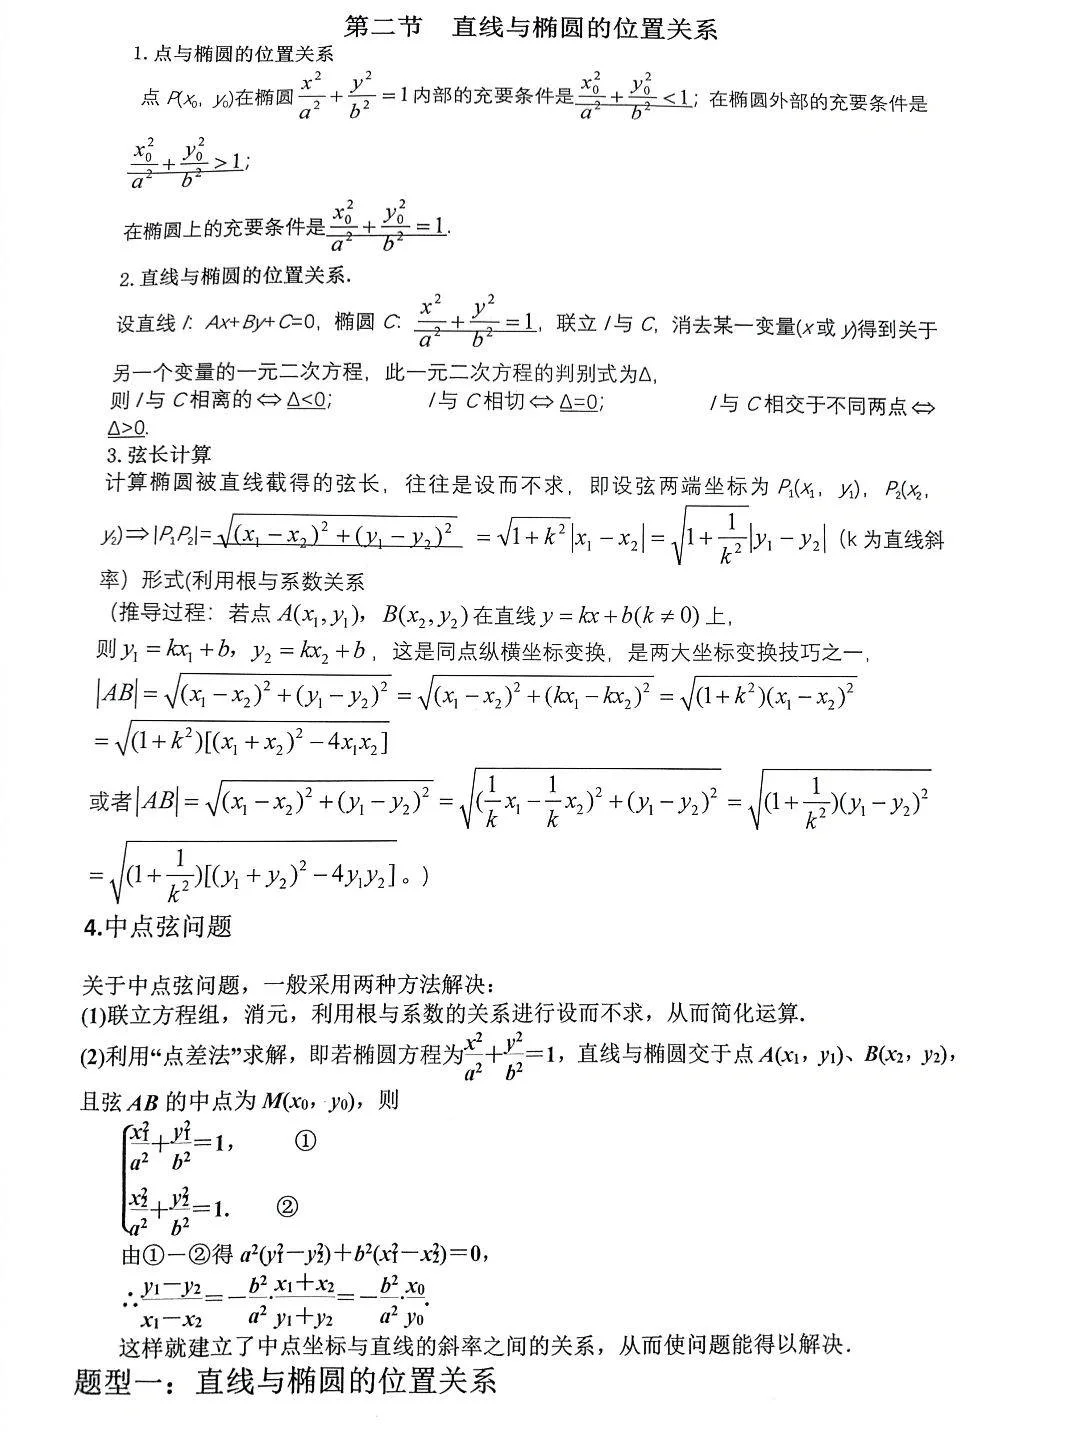 第二节 直线与椭圆的位置关系
1. 点与椭圆的位置关系
点 P(x₀, y₀)在椭圆 x²/a² + y²/b² = 1 内部的充要条件是 x₀²/a² + y₀²/b² < 1; 在椭圆外部的充要条件是
x₀²/a² + y₀²/b² > 1;
在椭圆上的充要条件是 x₀²/a² + y₀²/b² = 1.
2. 直线与椭圆的位置关系.
设直线 l: Ax+By+C=0, 椭圆 C: x²/a² + y²/b² = 1, 联立 l 与 C, 消去某一变量(x 或 y)得到关于
另一个变量的一元二次方程, 此一元二次方程的判别式为Δ,
则 l 与 C 相离的⇔Δ<0; l 与 C 相切⇔Δ=0; l 与 C 相交于不同两点⇔
Δ>0.
3. 弦长计算
计算椭圆被直线截得的弦长, 往往是设而不求, 即设弦两端坐标为 P₁(x₁, y₁), P₂(x₂,
y₂)⇒|P₁P₂|=√((x₁−x₂)²+(y₁−y₂)²) = √(1+k²)|x₁−x₂| = √(1+1/k²)|y₁−y₂| (k 为直线斜
率) 形式(利用根与系数关系
(推导过程: 若点 A(x₁,y₁), B(x₂,y₂) 在直线 y=kx+b(k≠0) 上,
则 y₁=kx₁+b, y₂=kx₂+b, 这是同点纵横坐标变换, 是两大坐标变换技巧之一,
|AB|=√((x₁−x₂)²+(y₁−y₂)²) = √((x₁−x₂)²+(kx₁−kx₂)²) = √((1+k²)(x₁−x₂)²)
=√((1+k²)[(x₁+x₂)²−4x₁x₂])
或者|AB|=√((x₁−x₂)²+(y₁−y₂)²) = √((1/k x₁−1/k x₂)²+(y₁−y₂)²) = √((1+1/k²)(y₁−y₂)²)
=√((1+1/k²)[(y₁+y₂)²−4y₁y₂])。)
4.中点弦问题
关于中点弦问题, 一般采用两种方法解决:
(1)联立方程组, 消元, 利用根与系数的关系进行设而不求, 从而简化运算.
(2)利用“点差法”求解, 即若椭圆方程为 x²/a²+y²/b²=1, 直线与椭圆交于点 A(x₁, y₁)、B(x₂, y₂),
且弦 AB 的中点为 M(x₀, y₀), 则
{x₁²/a²+y₁²/b²=1, ①
x₂²/a²+y₂²/b²=1. ②
由①−②得 a²(y₁²−y₂²)+b²(x₁²−x₂²)=0,
∴(y₁−y₂)/(x₁−x₂)=−b²/a²·(x₁+x₂)/(y₁+y₂)=−b²/a²·x₀/y₀.
这样就建立了中点坐标与直线的斜率之间的关系, 从而使问题能得以解决.
题型一: 直线与椭圆的位置关系